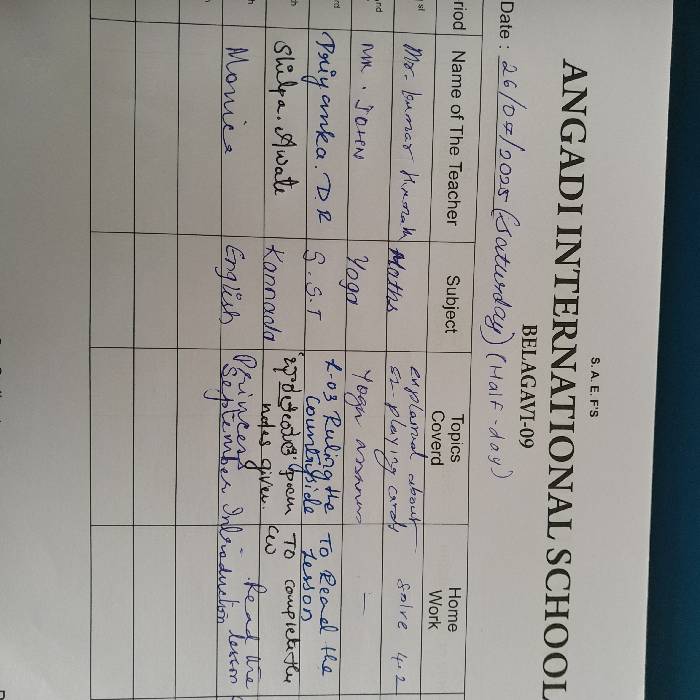 S. A. E. F'S
ANGADI INTERNATIONAL SCHOOL
BELAGAVI-09
Date : 26/07/2025 (Saturday) (Half-day)
riod Name of The Teacher Subject Topics Coverd Home Work
st Mr. kumar Maths explained about 52-playing cards solve 4.2
nd MR. JOHN Yoga Yoga asanas —
rd Priyanka. D.R S.S.T L-03 Ruling the countryside To Read the lesson
th Shilpa. Awate Kannada poem notes given. To complete the CW
h Monica English Princess September Introduction Read the lesson